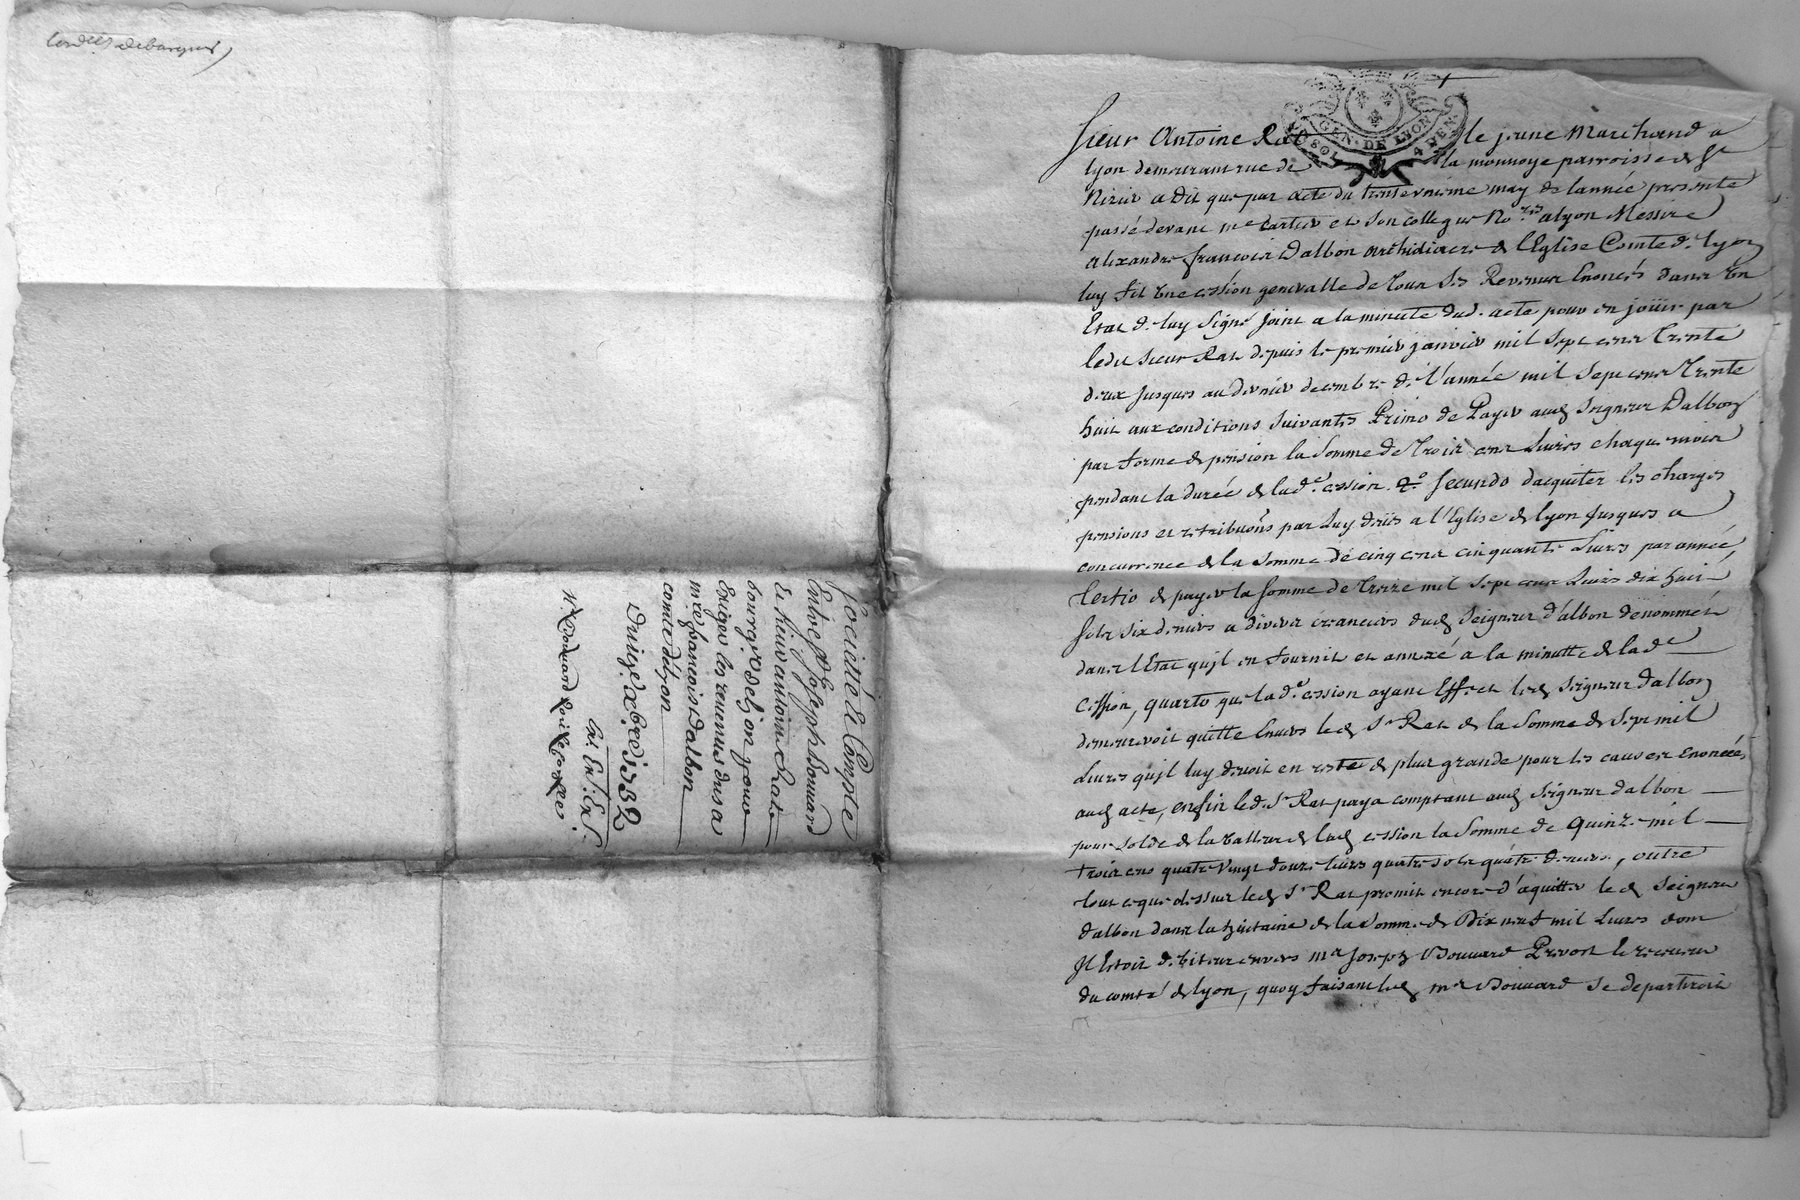 Sieur Antoine Rat le jeune Marchand a
lyon demeurant rue de la monnoye parroisse de St
Nizier a dit que par acte du trente unieme may de lannée presente
passé devant me Cartier et son collegue Nores a lyon Messire
alexandre françois Dalbon archidiacre de l'Eglise Comte de lyon
luy fit une cession generalle de tous ses Revenus Enoncés dans un
Etat de luy signé joint a la minute dud. acte pour en joüir par
ledit sieur Rat depuis le premier janvier mil sept cent trente
deux jusques au dernier decembre de l'année mil sept cent trente
huit aux conditions suivantes Primo de Payer aud seigneur Dalbon
par forme de pension la somme de trois cent livres chaque mois
pendant la durée de lade. cession. 2o secundo dacquiter les charges
pensions et retribuons par luy dües a l'Eglise de lyon jusques a
concurrence de la somme de cinq cent cinquante livres par année,
tertio de payer la somme de treize mil sept cent livres dix huit
sols six deniers a divers créanciers dud seigneur d'albon denommés
dans l'Etat qu'jl en fournit et annexé a la minutte de lade
cession, quarto que lade. cession ayant Effet led seigneur dalbon
demeureroit quitte Envers led Sr Rat de la somme de sept mil
livres qu'jl luy devoit en reste de plus grande pour les causes Enoncées
aud acte, enfin led. Sr Rat paya comptant aud seigneur dalbon
pour solde de la valleur de lad cession la somme de quinze mil
trois cens quatre vingt douze livres quatre sols quatre deniers, outre
tout ce que dessus led Sr Rat promit encore d'aquitter led seigneur
d'albon dans la huitaine de la somme de Dix neuf mil livres dont
Jl Estoit debiteur envers mr Joseph Bouvard Prevost le receveur
du comté de lyon, quoy faisant led mr Bouvard se departiroit
Société de Compte
Entre sr Joseph bouvard
Et sieur antoine Rat
bourgs. de Lyon pour
Exiger les revenus dus a
mre françois Dalbon
comte de Lyon
Du 1732